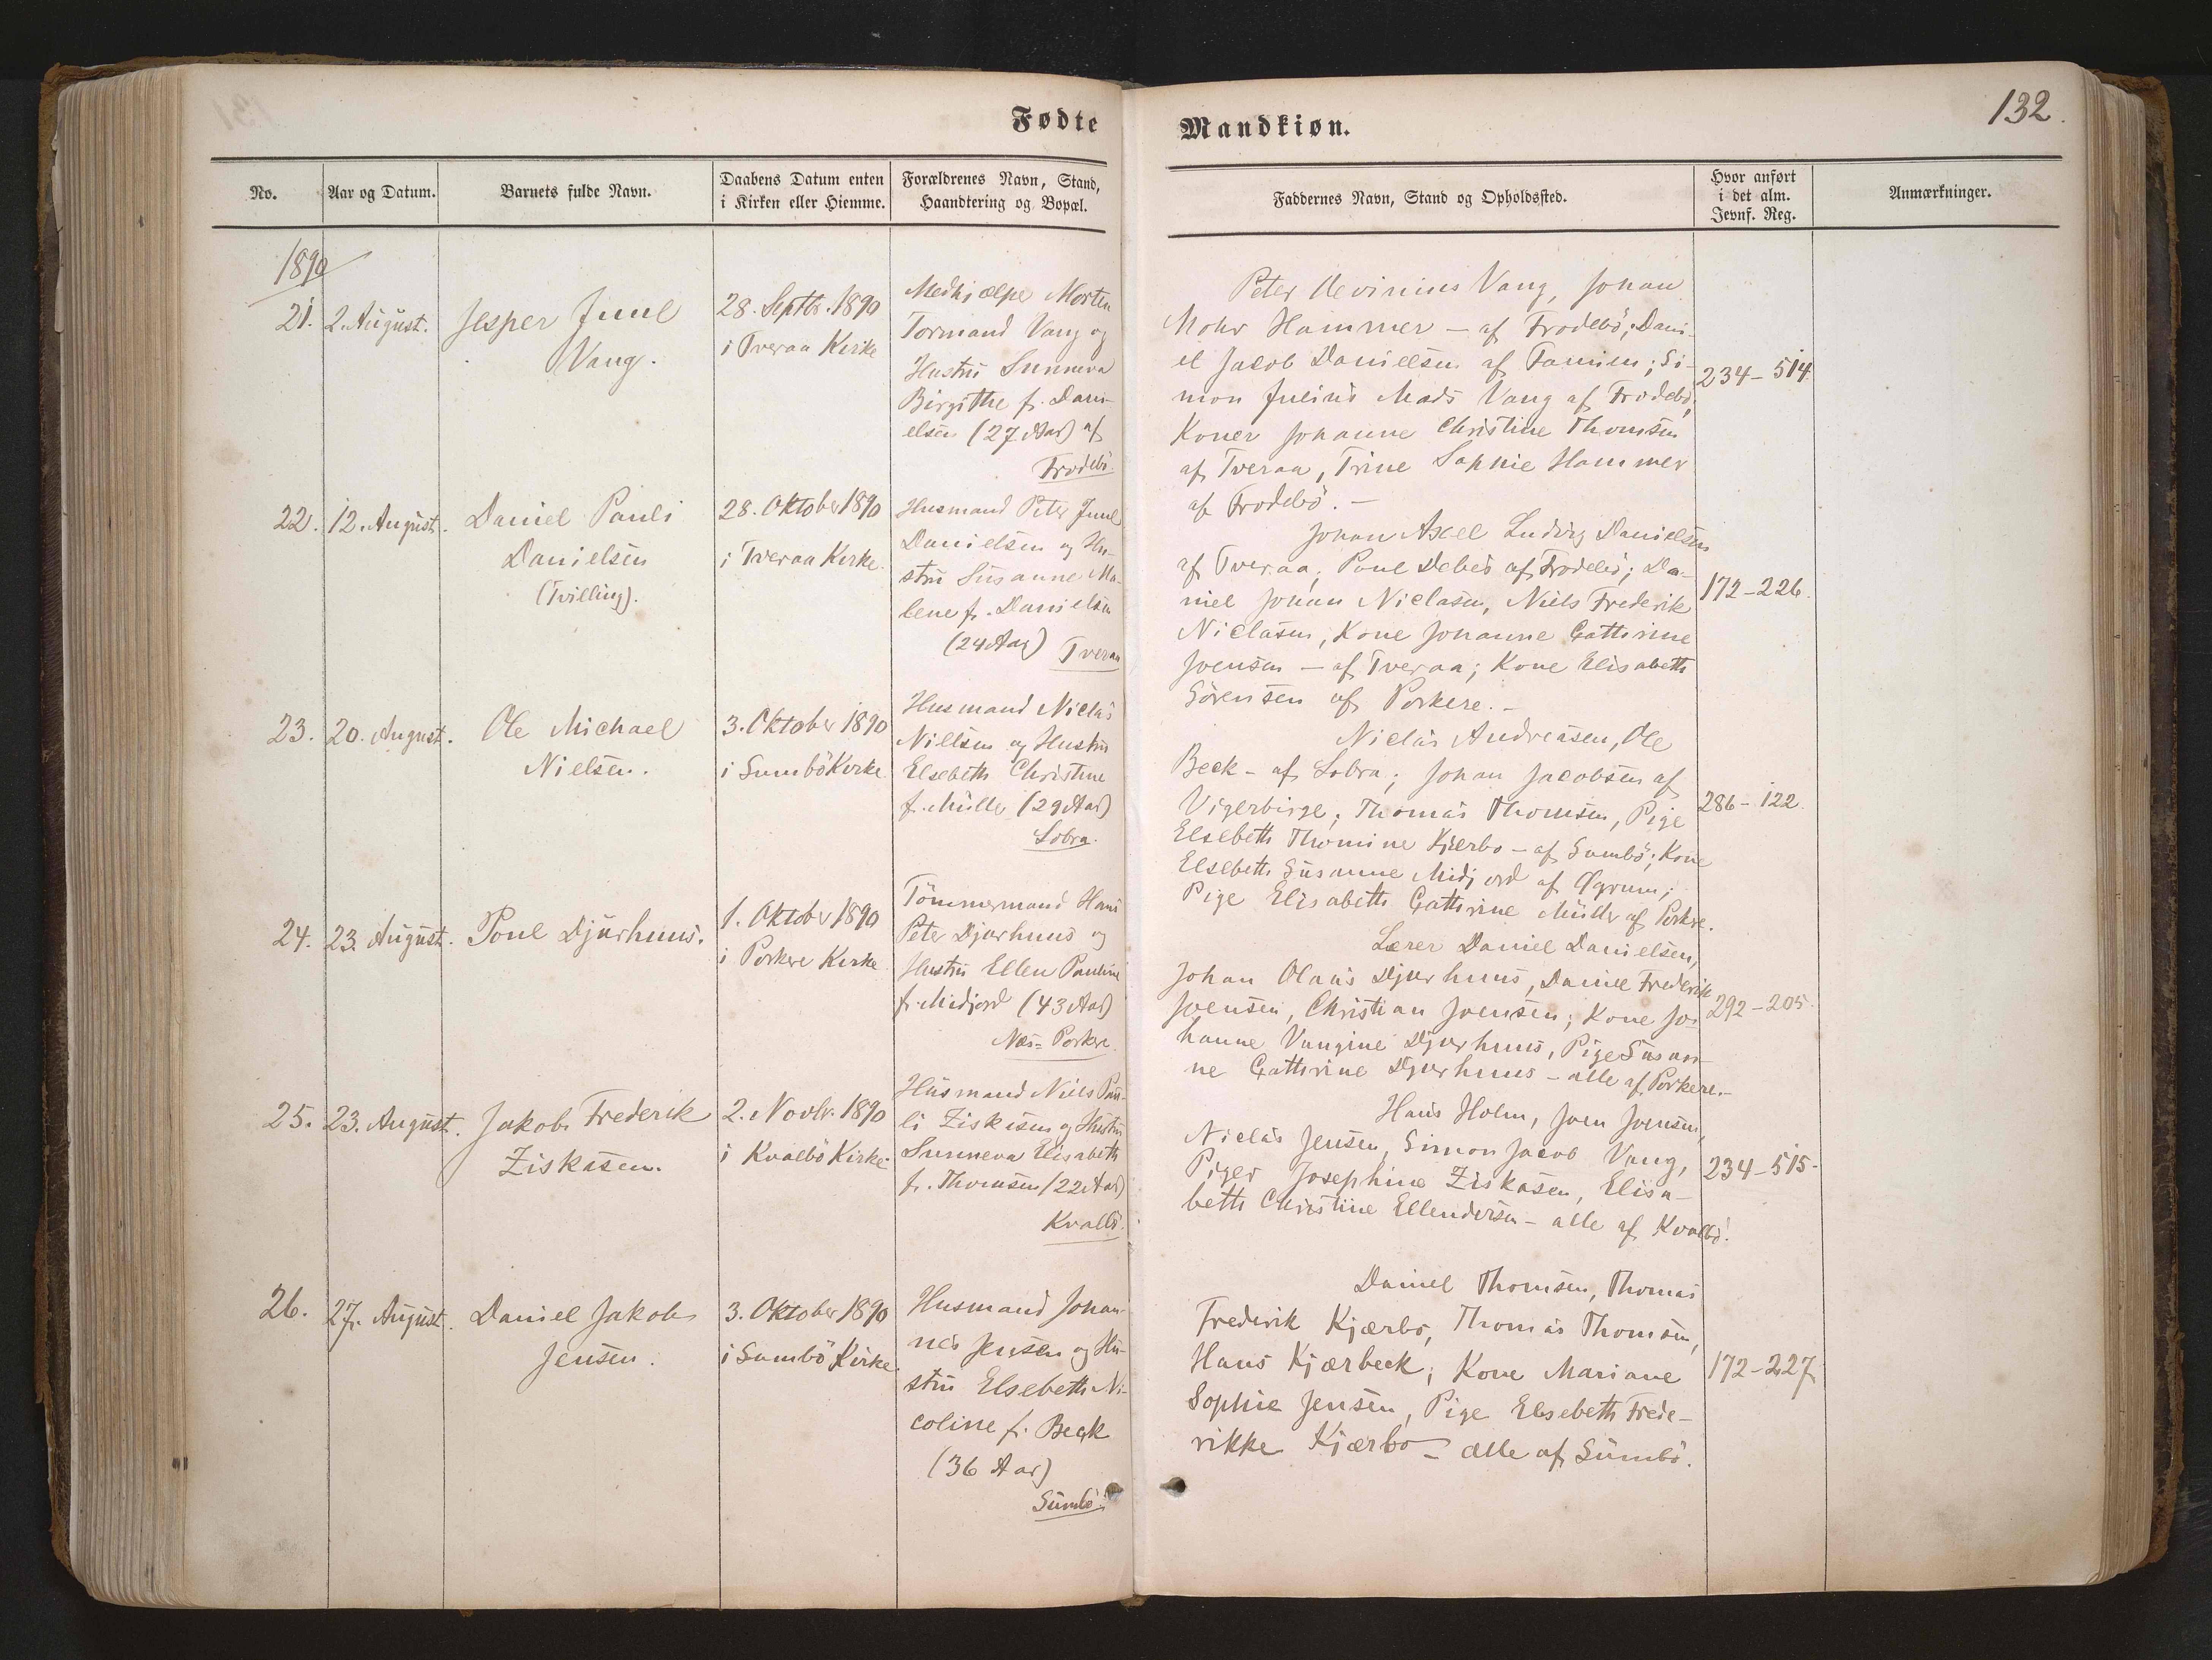 Fødte
Mandkiøn.
132.
No.
Aar og Datum.
Barnets fulde Navn.
Daabens Datum enten
i Kirken eller Hiemme.
Forældrenes Navn, Stand,
Haandtering og Bopæl.
Faddernes Navn, Stand og Opholdssted.
Hvor anført
i det alm.
Jevnf. Reg.
Anmærkninger.
1890
21.
2. August.
Jesper Juul
Vang.
28. Septbr. 1890
i Tveraa Kirke
Medhjælper Morten
Tormand Vang og
Hustru Sunneva
Birgithe f. Dani-
elsen (27 Aar) af
Frodebö.
Peter Vang, Johan
Mohr Hammer - af Frodebö; Dani-
el Jacob Danielsen af Famien; Si-
mon Julius Mads Vang af Frodebö,
Koner Johanne Christine Thomsen
af Tveraa, Trine Sophie Hammer
af Frodebö. -
234 - 514.
22.
12. August.
Daniel Pauli
Danielsen
(Tvilling).
28. Oktober 1890
i Tveraa Kirke.
Husmand Peter Juul
Danielsen og Hu-
stru Susanne Ma-
lene f. Danielsen
(24 Aar)
Tveraa
Johan Axel Ludvig Danielsen
af Tveraa, Poul Debes af Frodebö; Da-
niel Johan Niclasen, Niels Frederik
Niclasen, Kone Johanne Cathrine
Joensen - af Tveraa; Kone Elisabeth
Sörensen af Porkere. -
172 - 226.
23.
20. August.
Ole Michael
Nielsen.
3. Oktober 1890
i Sumbö Kirke
Husmand Niclas
Nielsen og Hustru
Elsebeth Christine
f. Müller (29 Aar)
Lobra.
Niclas Andreasen, Ole
Beck - af Lobra; Johan Jacobsen af
Vigerbirge; Thomas Thomsen, Pige
Elsebeth Thomine Kjærbo - af Sumbö; Kone
Elsebeth Susanne Midjord af Ögrum;
Pige Elisabeth Cathrine Müller af Porkere.
286 - 122.
24.
23. August.
Poul Djurhuus.
1. Oktober 1890
i Porkere Kirke
Tömmermand Hans
Peter Djurhuus og
Hustru Ellen Pauline
f. Midjord (43 Aar)
Næs = Porkere.
Lærer Daniel Danielsen,
Johan Olaus Djurhuus, Daniel Frederik
Joensen, Christian Joensen; Kone Jo-
hanne Vangine Djurhuus, Pige Susan-
ne Cathrine Djurhuus - alle af Porkere. -
292 - 205.
25.
23. August.
Jakob Frederik
Ziskasen.
2. Novbr. 1890
i Kvalbö Kirke.
Husmand Niels Pau-
li Ziskasen og Hustru
Sunneva Elisabeth
f. Thomsen (22 Aar)
Kvalbö.
Hans Holm, Joen Joensen,
Niclas Jensen, Simon Jacob Vang,
Piger Josephine Ziskasen, Elisa-
beth Christine Ellendersen - alle af Kvalbö.
234 - 515.
26.
27. August.
Daniel Jakob
Jensen.
3. Oktober 1890
i Sumbö Kirke.
Husmand Johan-
nes Jensen og Hu-
stru Elsebeth Ni-
coline f. Beck
(36 Aar)
Sumbö.
Daniel Thomsen, Thomas
Frederik Kjærbo, Thomas Thomsen,
Hans Kjærbeck; Kone Mariane
Sophie Jensen, Pige Elsebeth Frede-
rikke Kjærbo - alle af Sumbö.
172 - 227.